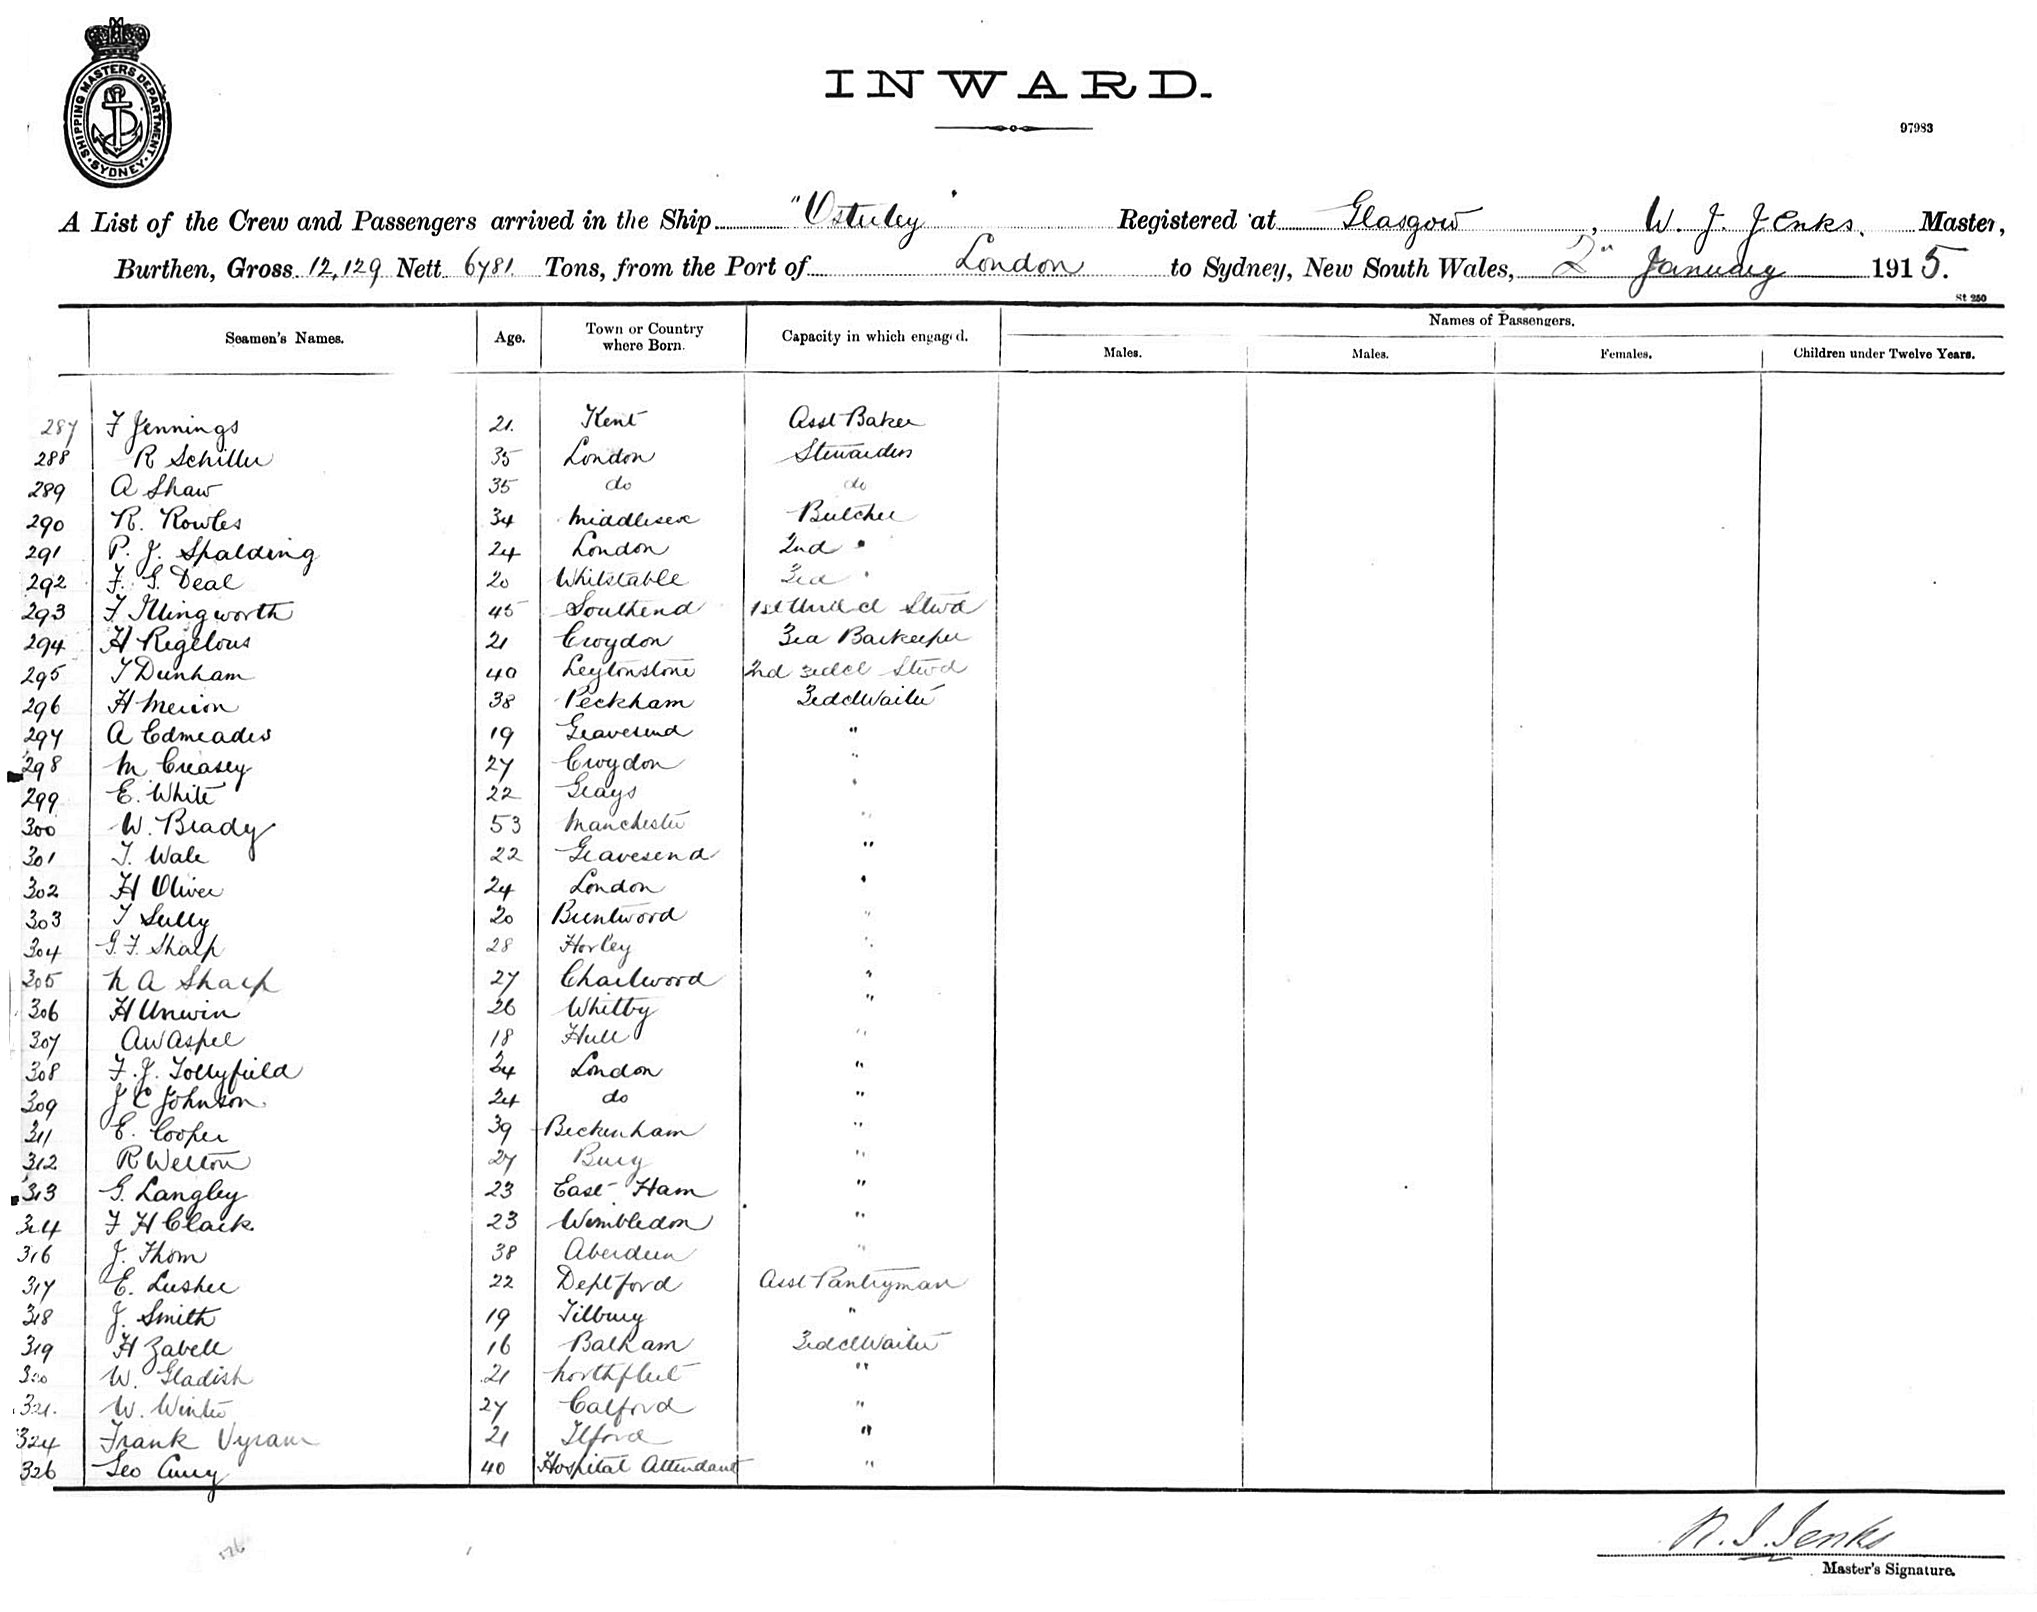 SHIPPING MASTERS DEPARTMENT · SYDNEY ·
INWARD.
97983
A List of the Crew and Passengers arrived in the Ship "Osterley" Registered at Glasgow, W. J. Jenks. Master,
Burthen, Gross 12,129 Nett 6781 Tons, from the Port of London to Sydney, New South Wales, 2nd January 1915.
St 250
Seamen's Names. Age. Town or Country where Born. Capacity in which engaged. Names of Passengers.
Males. Males. Females. Children under Twelve Years.
287 F Jennings 21. Kent Asst Baker
288 R Schiller 35 London Stewardess
289 A Shaw 35 do do
290 R. Rowles 34 Middlesex Butcher
291 P. J. Spalding 24 London 2nd "
292 F. G. Deal 20 Whitstable 3rd "
293 F Illingworth 45 Southend 1st Third cl Stwd
294 H Rigelous 21 Croydon 3rd Barkeeper
295 T Dunham 40 Leytonstone 2nd 3rd cl Stwd
296 H Merion 38 Peckham 3rd cl Waiter
297 A Edmeades 19 Gravesend "
298 M Creasey 27 Croydon "
299 E. White 22 Grays "
300 W. Brady 53 Manchester "
301 T. Wale 22 Gravesend "
302 H Oliver 24 London "
303 T Sully 20 Brentwood "
304 G. F. Sharp 28 Horley "
305 N A Sharp 27 Charlwood "
306 H Unwin 26 Whitby "
307 A W Aspel 18 Hull "
308 F. J. Tollyfield 24 London "
309 J C Johnson. 24 do "
311 E. Cooper 39 Beckenham "
312 R Welton 27 Bury "
313 G. Langley 23 East Ham "
314 F H Clark 23 Wimbledon "
316 J. Thom 38 Aberdeen "
317 E. Lusher 22 Deptford Asst Pantryman
318 J. Smith 19 Tilbury "
319 H Zabell 16 Balham 3rd cl Waiter
320 W. Gladish 21 Northfleet "
321. W. Winter 27 Catford "
324 Frank Vyram 21 Ilford "
326 Geo Curry 40 Hospital Attendant "
W. J. Jenks
Master's Signature.